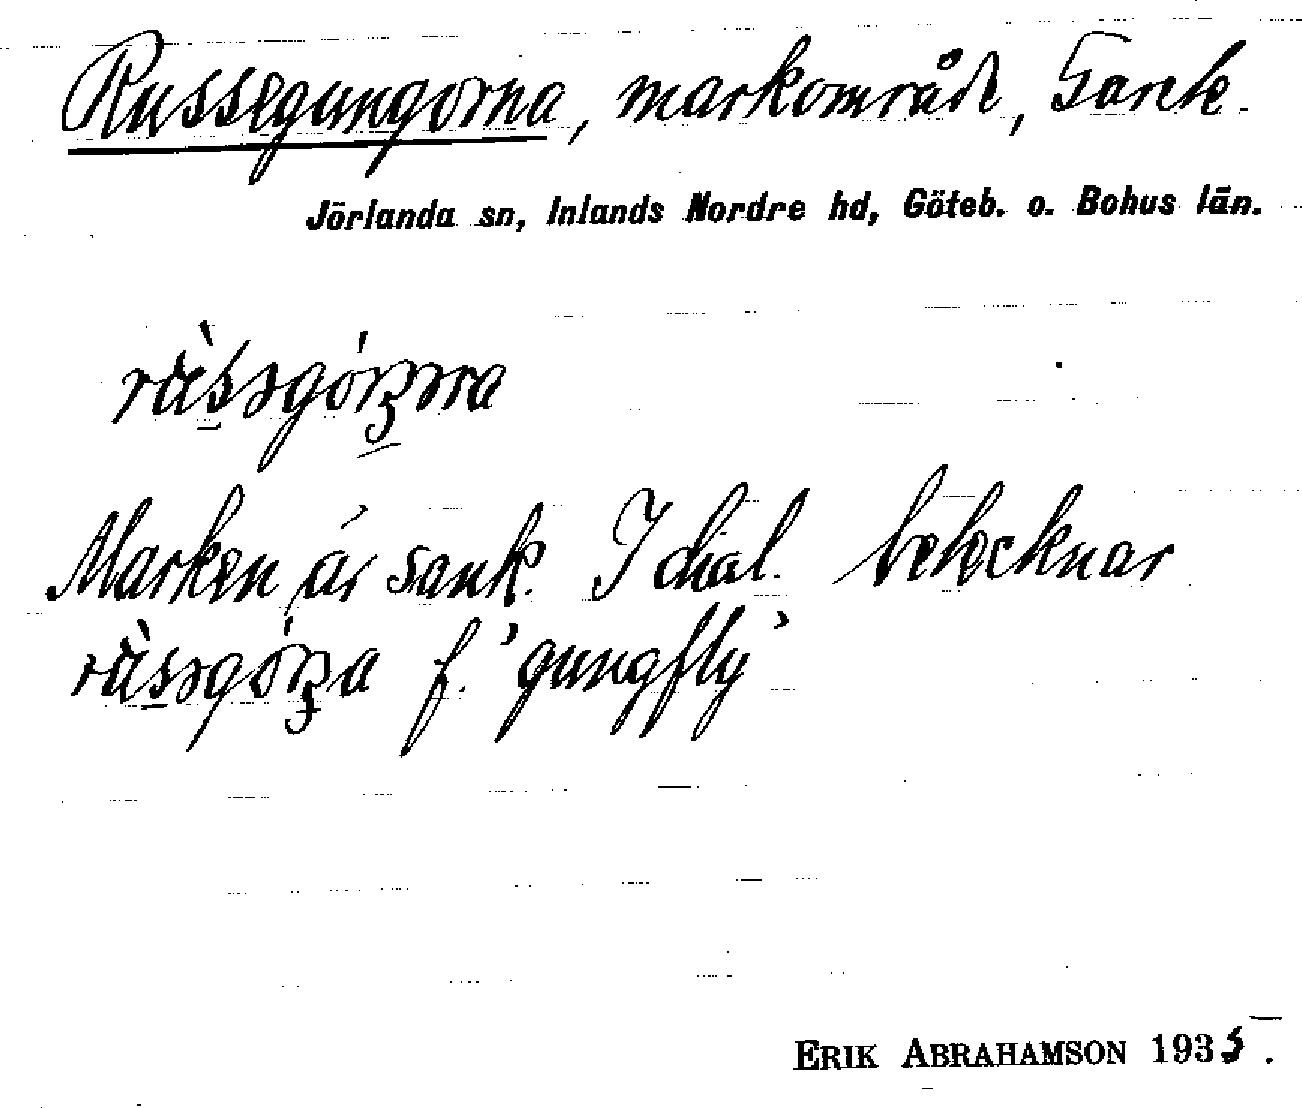 Russegungorna, markområde, Sarek.
Jörlanda sn, Inlands Nordre hd, Göteb. o. Bohus län.
Marken är sank. I dial. betecknar
f. 'gungfly'
ERIK ABRAHAMSON 1935.